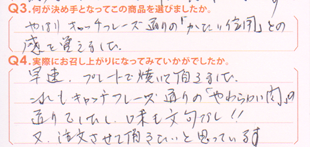 Q3.何が決め手となってこの商品を選びましたか。
やはりキャッチフレーズ通りの「かたい信用」との
感を覚えました。
Q4.実際にお召し上がりになってみていかがでしたか。
早速、プレートで焼いて頂きました。
これもキャッチフレーズ通りの「やわらかい肉」の
通りでしたし、口味も文句なし!!
又、注文させて頂きたいと思っています